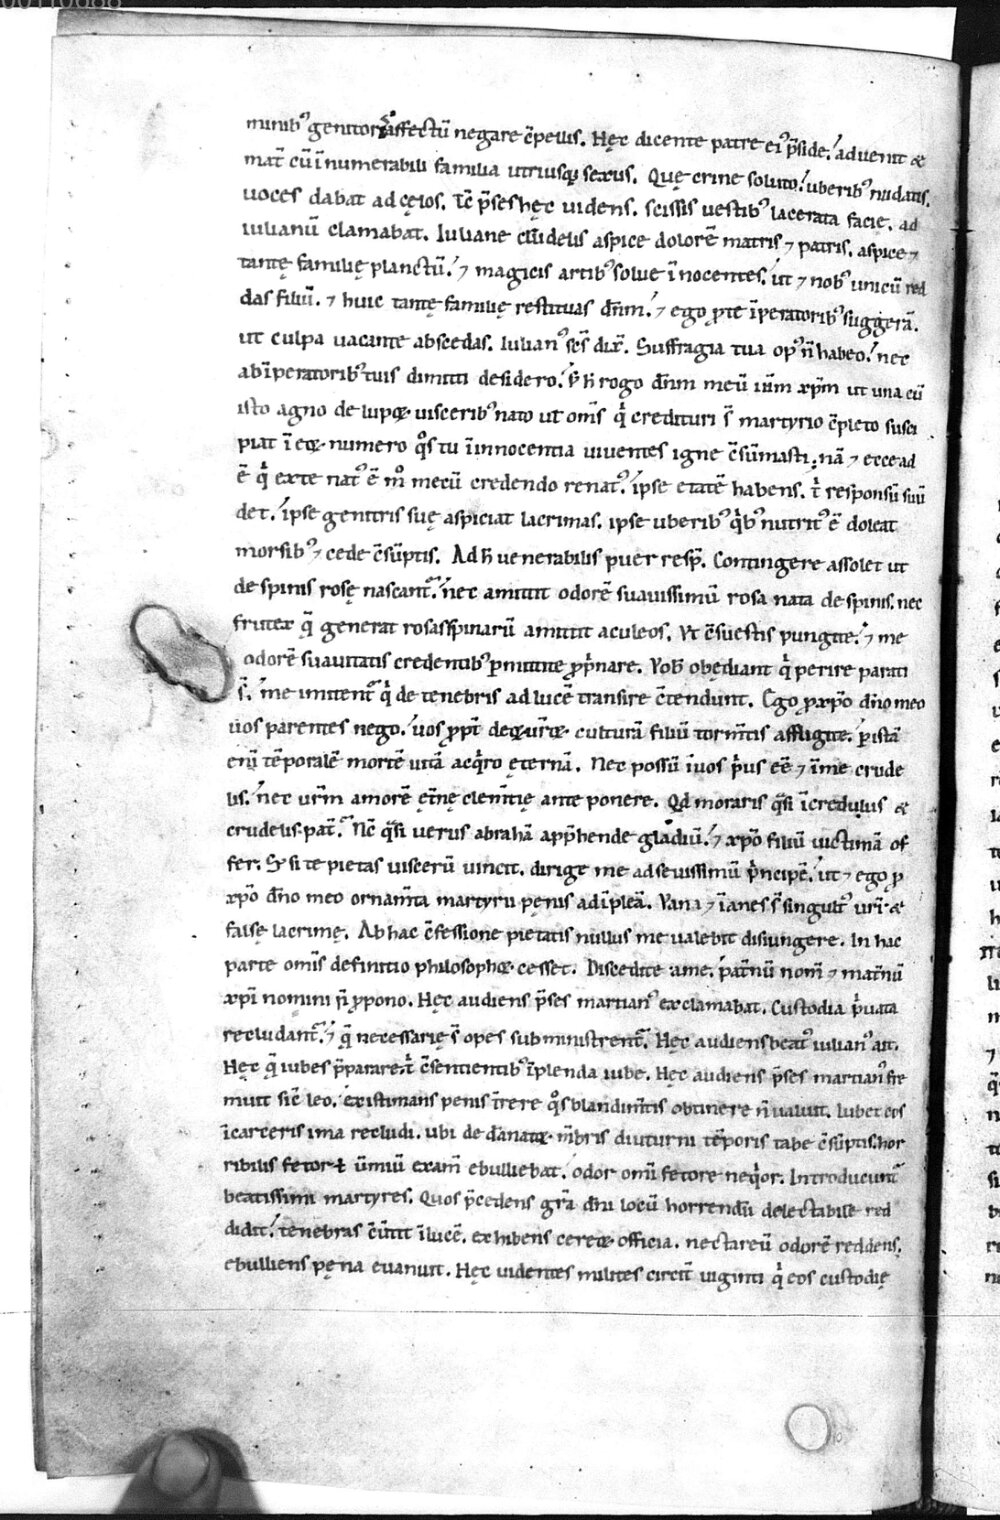 minibꝰ genitorū affectū negare c̄pellis. Hęc dicente patre eiꝰ p̄side. aduenit &
mat̄ cū īnumerabili familia utriusq; sexus. Quę crine soluto. uberibꝰ nudatis.
uoces dabat ad cęlos. Tc̄ p̄ses hęc uidens. scissis uestibꝰ lacerata facie. ad
iulianū clamabat. Iuliane crudelis aspice dolorē matris ⁊ patris. aspice ⁊
tantę familię planctū. ⁊ magicis artibꝰ solue īnocentes. ut ⁊ nobꝰ unicū red
das filiū. ⁊ huic tantę familię restituas dn̄m. ⁊ ego ꝓ te īperatoribꝰ suggerā.
ut culpa uacante abscedas. Iulianꝰ sc̄s dix̄. Suffragia tua opꝰ n̄ habeo. nec
ab īperatoribꝰ tuis dimitti desidero. s; h̄ rogo dn̄m meū ih̄m xp̄m ut una cū
isto agno de lupoꝝ uisceribꝰ nato ut om̄s qͥ credituri s̄ martyrio c̄pleto susci
piat ī eoꝝ numero qͦs tu ī innocentia uiuentes igne c̄sūmasti. nā ⁊ ecce ad
ē qͥ ex te natꝰ ē m̊ mecū credendo renatꝰ. ipse etatē habens. t̄ responsū suū
det. ipse genitris suę aspiciat lacrimas. ipse uberibꝰ qͥbꝰ nutritꝰ ē doleat
morsibꝰ ⁊ cede c̄sūptis. Ad h̄ uenerabilis puer resp̄. Contingere assolet ut
de spinis rosę nascant᷑. nec amittit odorē suauissimū rosa nata de spinis. nec
frutex q̄ generat rosas spinarū amittit aculeos. Vt c̄suestis pungite. ⁊ me
odorē suauitatis credentibꝰ ꝑmittite ꝓp̄nare. Vob̄ obędiant qͥ perire parati
s̄. me imitent᷑ qͥ de tenebris ad lucē transire c̄tendunt. Ego ꝓ xp̄o dn̄o meo
uos parentes nego. uos ꝓpt̄ deoꝝ ur̄oꝝ culturā filiū torm̄tis affligite. ꝑ istā
eni᷑ tēporalē mortē uitā acqͥro ęternā. Nec possū i uos pͥus eē ⁊ ī me crude
lis. nec ur̄m amorē et̄nę clem̄tię ante ponere. Qd̄ moraris qͣsi īcredulus &
crudelis pat̄. Nc̄ qͣsi uerus abrahā app̄hende gladiū. ⁊ xp̄o filiū uictimā of
fer. S; si te pietas uiscerū uincit. dirige me ad seuissimū pͥncipē. ut ⁊ ego ꝓ
xp̄o dn̄o meo ornam̄ta martyru penis adīpleā. Vana ⁊ īanes s̄ singultꝰ ur̄i &
falsę lacrimę. Ab hac c̄fessione pietatis nullus me ualebit disiungere. In hac
parte om̄is definitio philosophoꝝ cesset. Discedite a me. pat̄nū nom̄ ⁊ mat̄nū
xp̄i nomini n̄ p̄pono. Hęc audiens p̄ses martianꝰ exclamabat. Custodia pͥuata
recludant᷑. ⁊ q̄ necessarię s̄ opes subministrent᷑. Hęc audiens beatꝰ iulianꝰ ait.
Hęc q̄ iubes p̄parare. t̄ c̄sentientibꝰ īplenda iube. Hęc audiens p̄ses martianꝰ fre
muit sic̄ leo. existimans penis t̄rere qͦs blandim̄tis obtinere n̄ ualuit. Iubet eos
ī carceris ima recludi. ubi de dānatoꝝ m̄bris diuturni tēporis tabe c̄sūptis. hor
ribilis fetor ⁊ ūmiū exam̄ ebulliebat. odor omi᷑ fetore neqͥor. Introducunt᷑
beatissimi martyres. Quos p̄cedens gr̄a dn̄i locū horrendū delectabile red
didit. tenebras c̄ūtit ī lucē. exhibens cereoꝝ officia. nectareū odorē reddens.
ebulliens pęna euanuit. Hęc uidentes milites circit̄ uiginti qͥ eos custodię